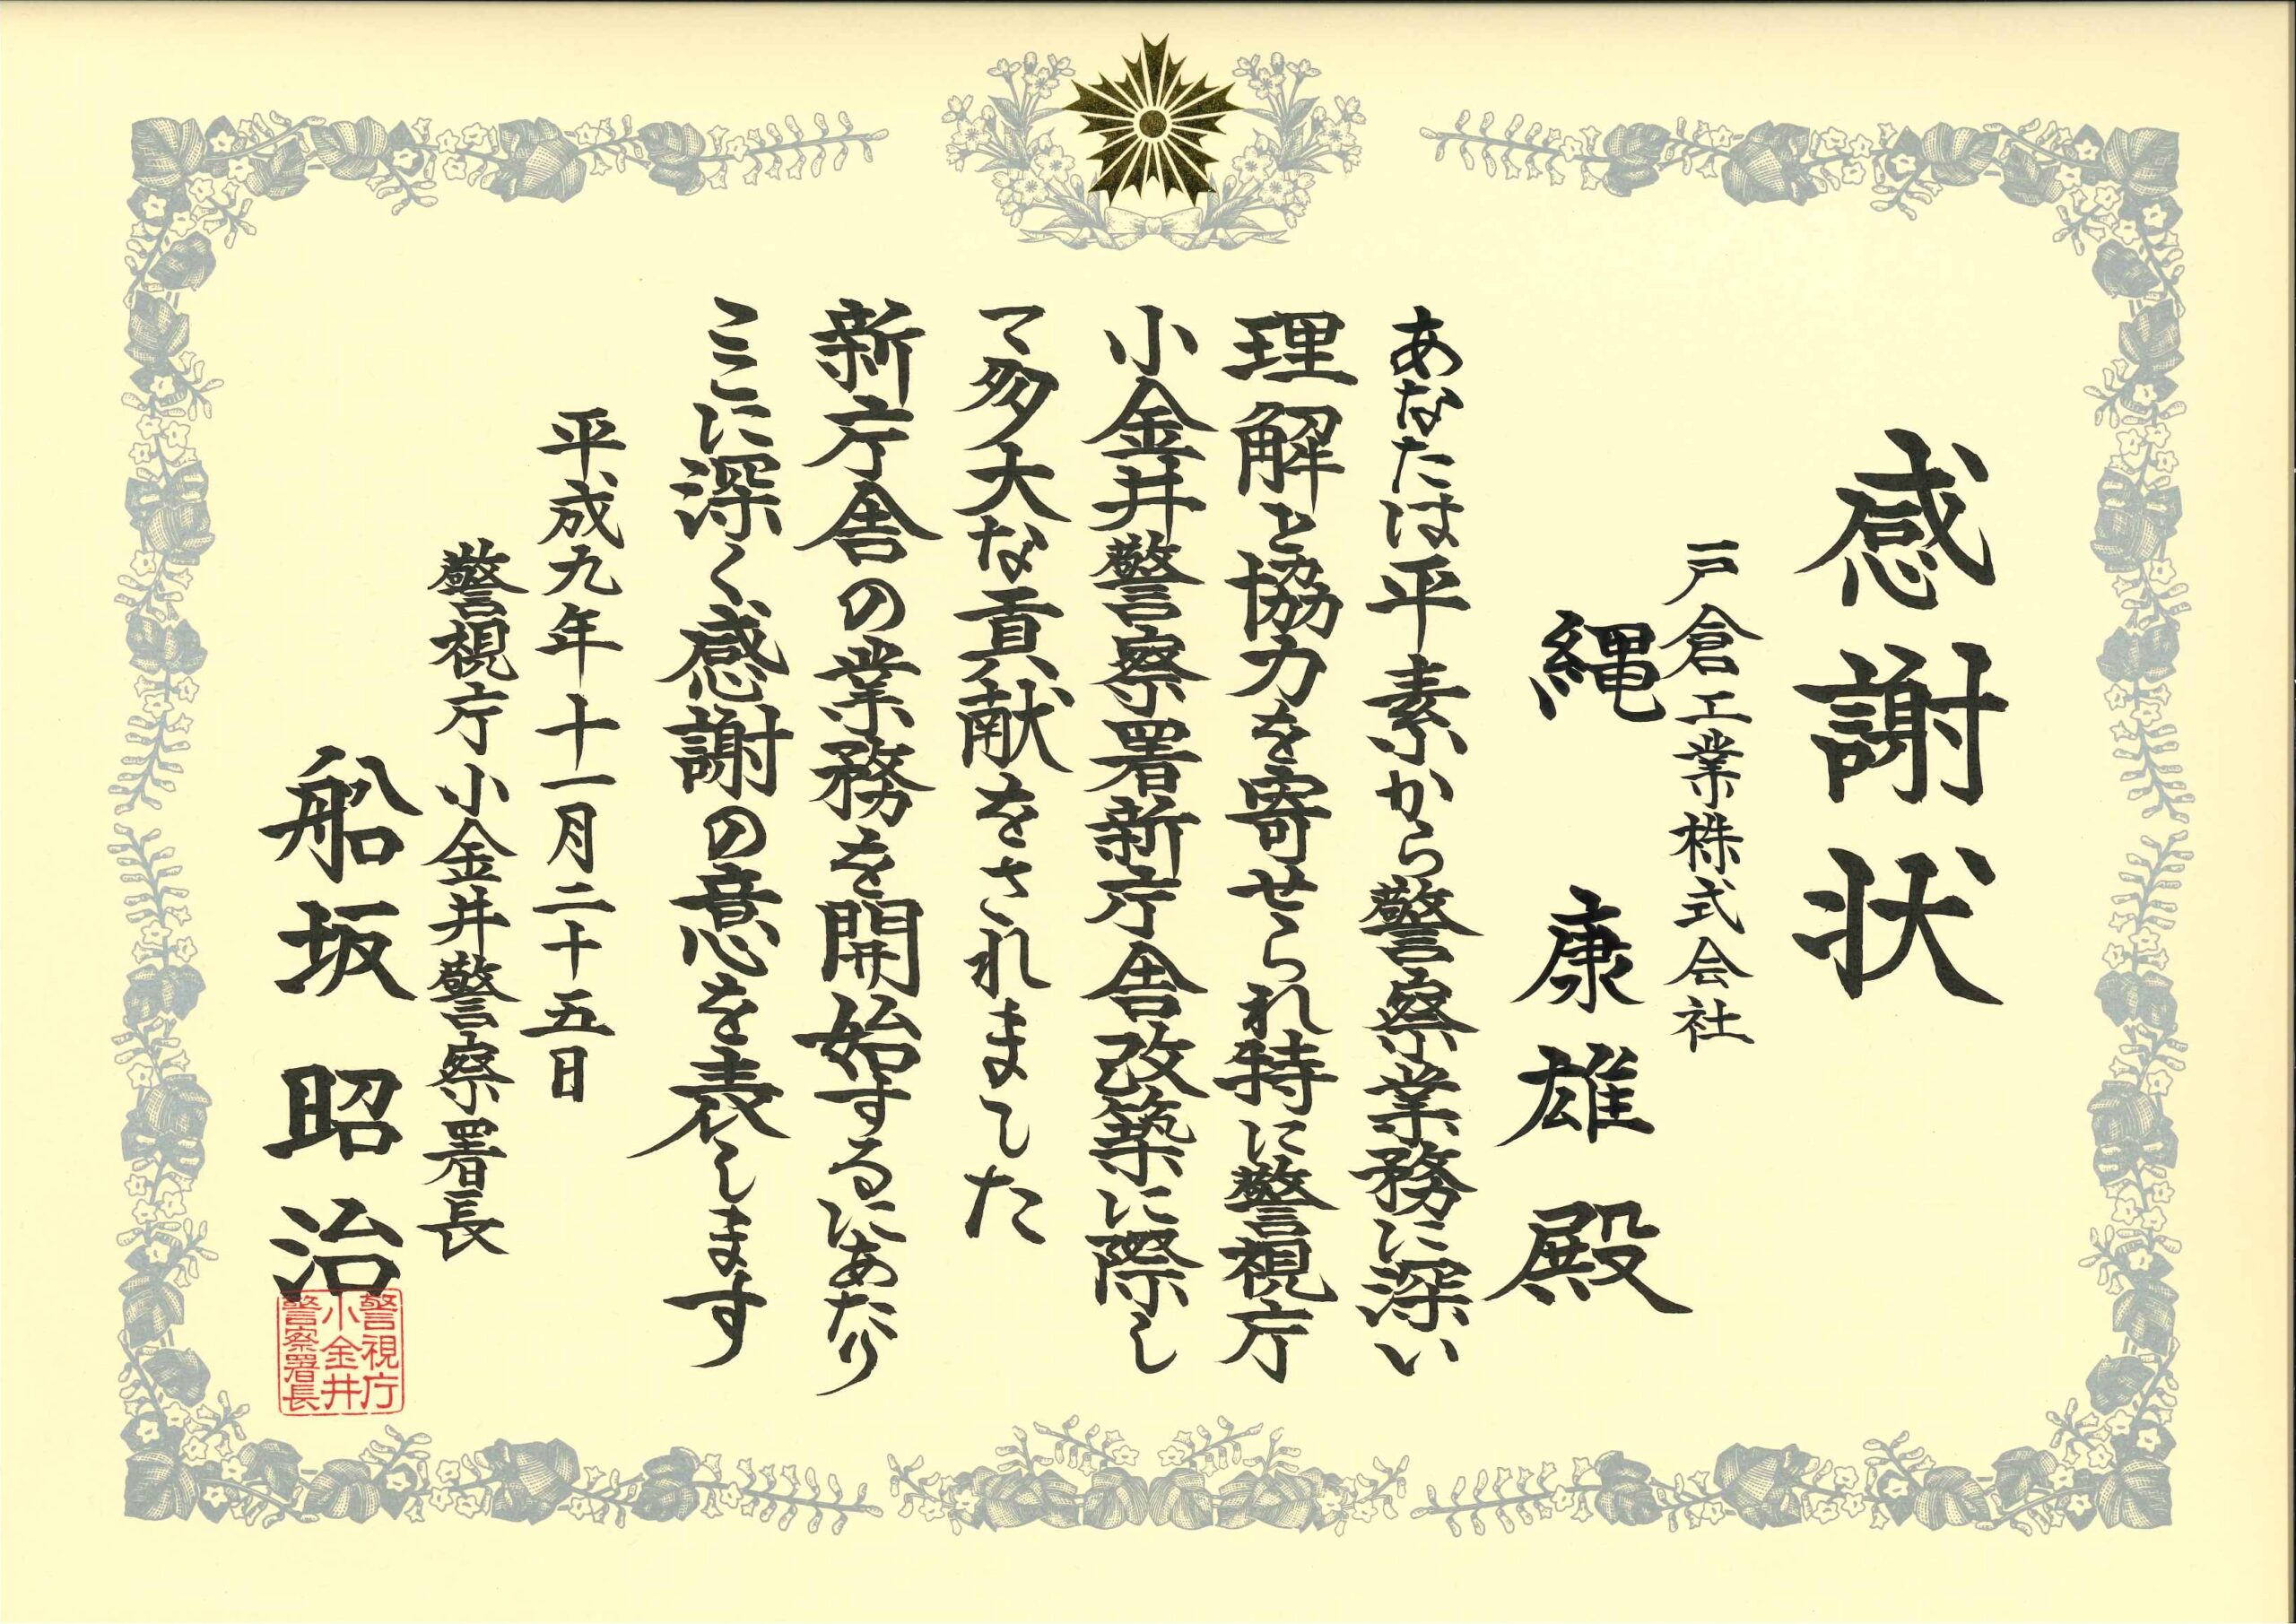 感謝状
戸倉工業株式会社
縄 康雄 殿
あなたは平素から警察業務に深い
理解と協力を寄せられ特に警視庁
小金井警察署新庁舎改築に際し
て多大な貢献をされました
新庁舎の業務を開始するにあたり
ここに深く感謝の意を表します
平成九年十一月二十五日
警視庁小金井警察署長
船坂昭治
警視庁
小金井
警察署長